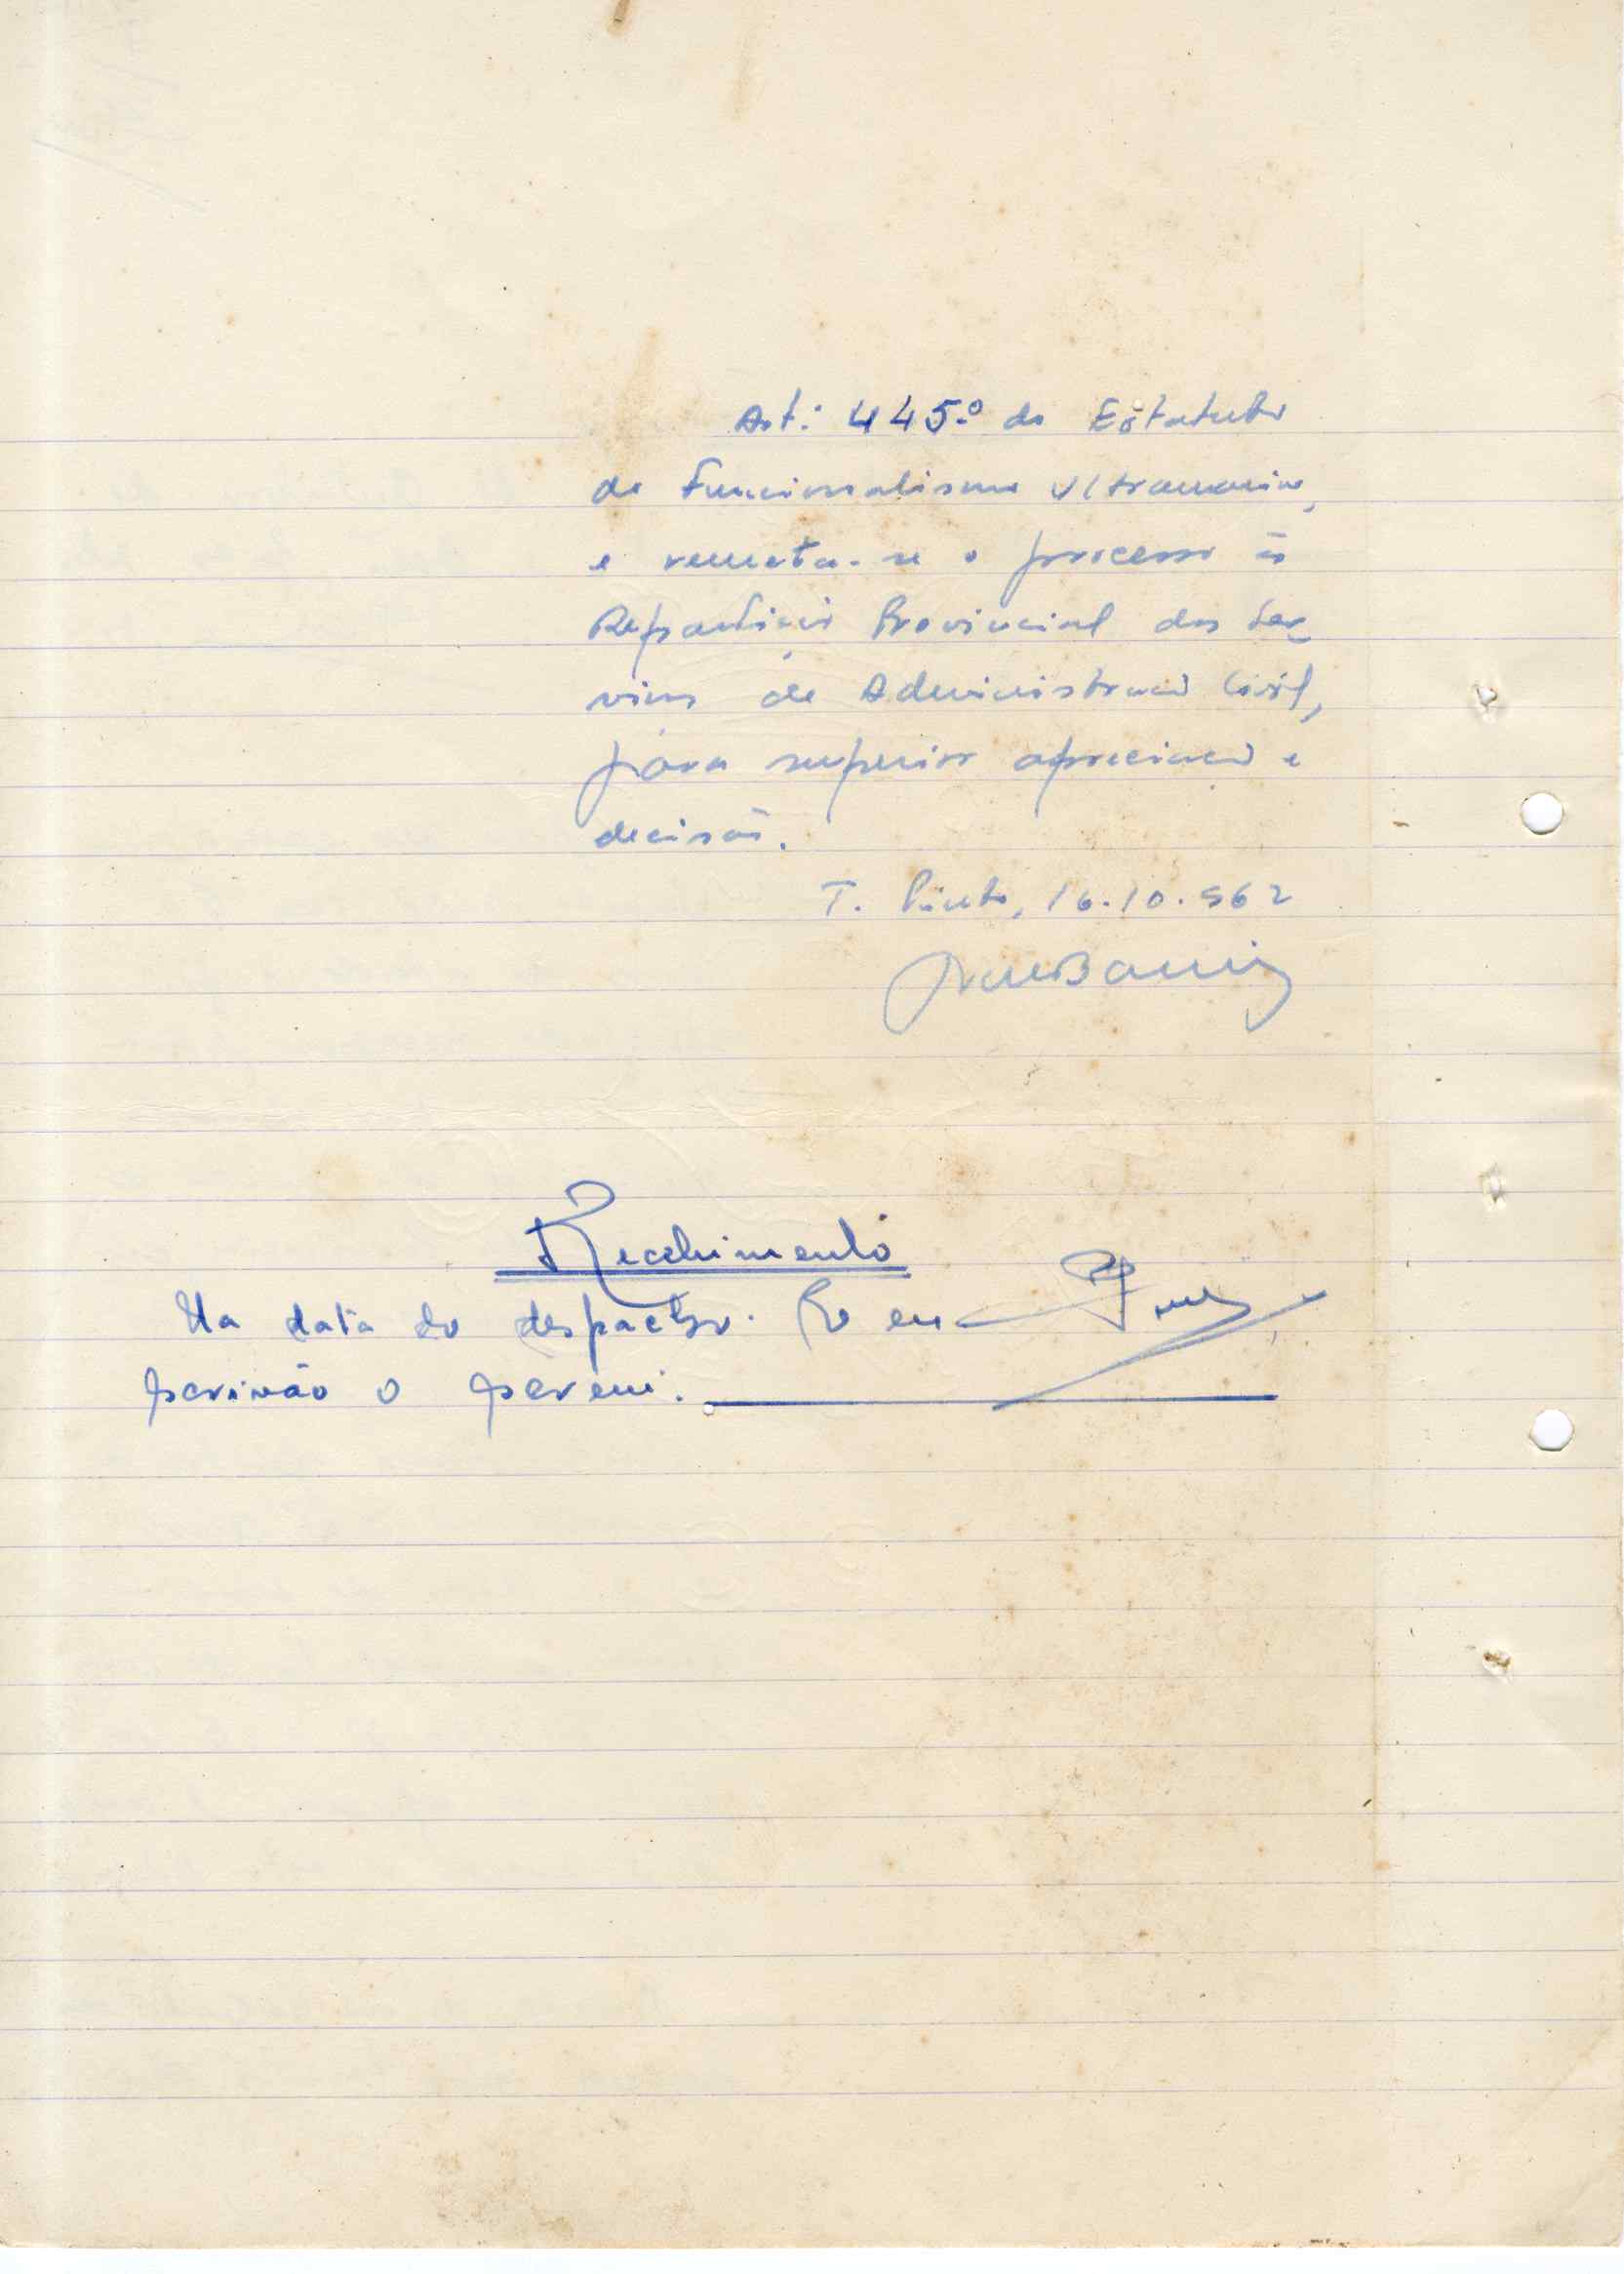 Art: 445.º do Estatuto
do Funcionalismo Ultramarino,
e remeta-se o processo à
Repartição Provincial dos Ser
viços de Administração Civil,
para superior apreciação e
decisão.
T. Pinto, 16.10.962
Recebimento
Na data do despacho. E eu
escrivão o escrevi.